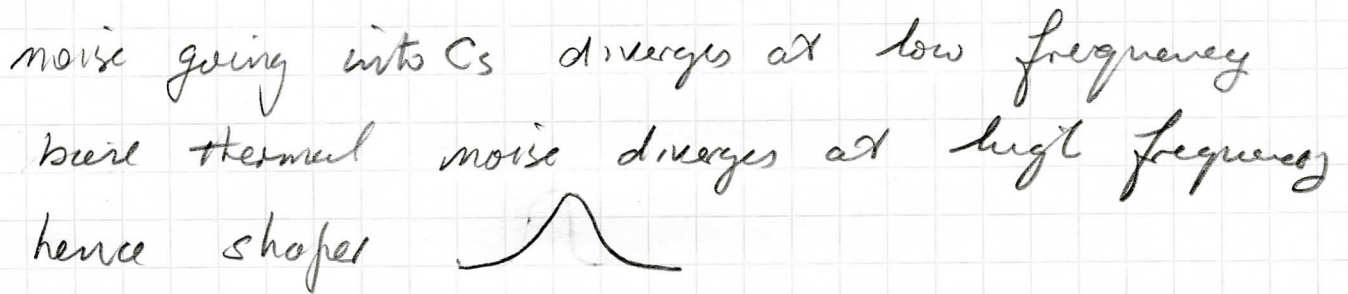 noise going into Cs diverges at low frequency
bare thermal noise diverges at high frequency
hence shaper